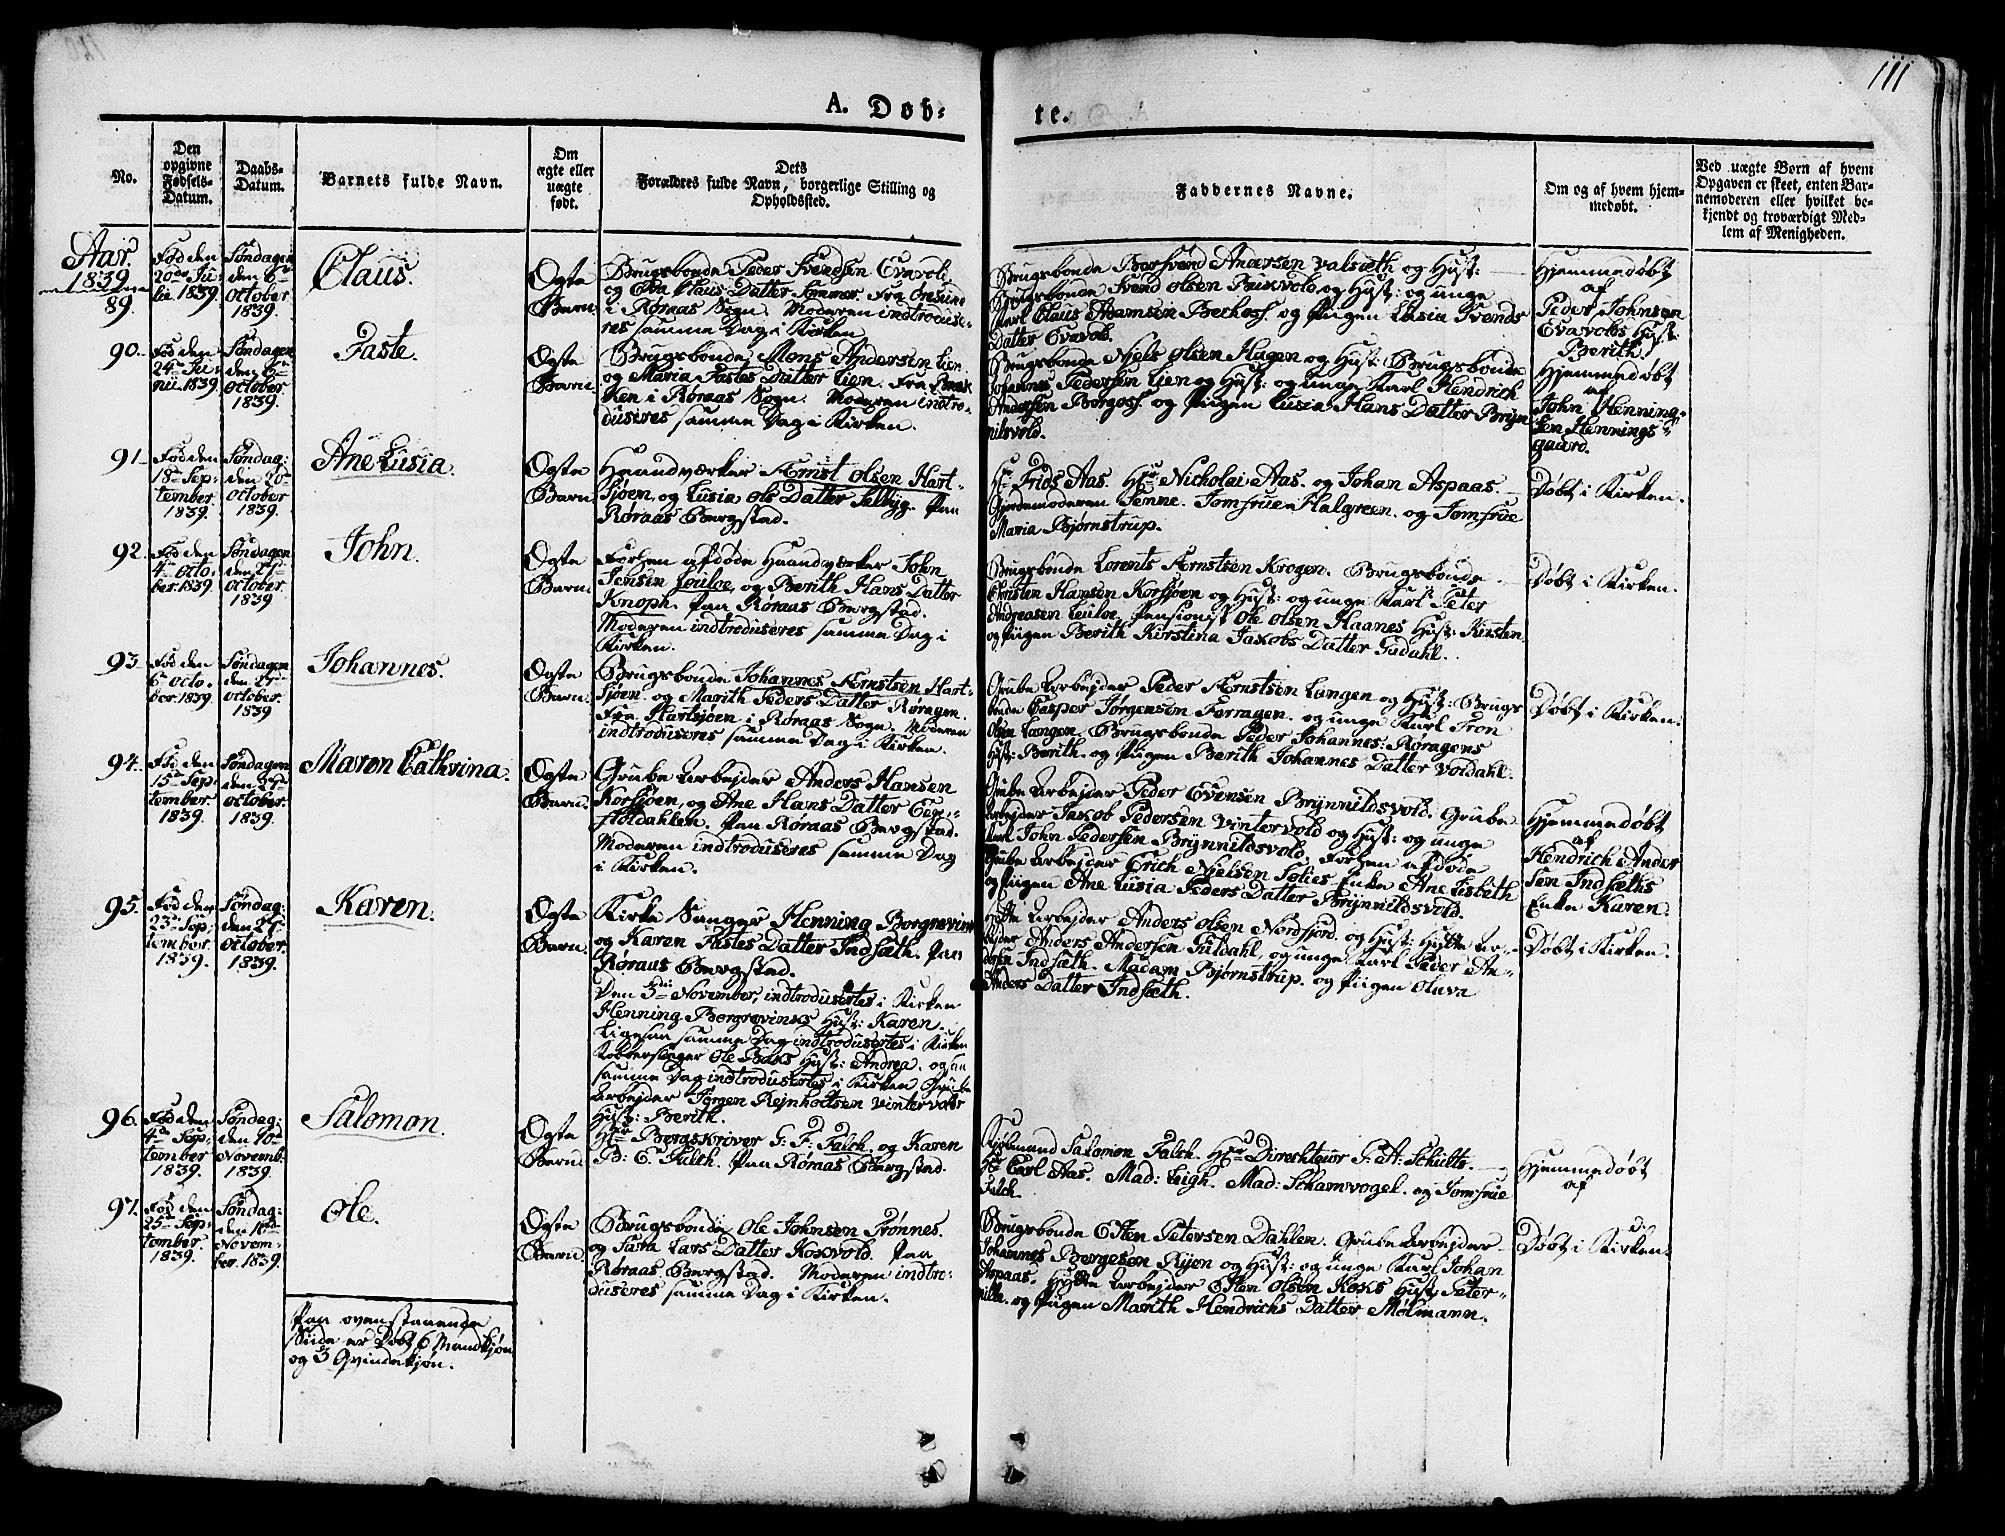 111
A. Døb-
te.
No.
Den
opgivne
Fødsels-
Datum.
Daabs-
Datum.
Barnets fulde Navn.
Om
ægte eller
uægte
født.
Dets
Forældres fulde Navn, borgerlige Stilling og
Opholdssted.
Faddernes Navne.
Om og af hvem hjem-
medøbt.
Ved uægte Børn af hvem
Opgaven er skeet, enten Bar-
nemoderen eller hvilket be-
kjendt og troværdigt Med-
lem af Menigheden.
Aar.
1839.
89.
Fød den
20de Ju-
lii 1839.
Søndagen
den 6te
October
1839.
Claus.
Ægte
Barn.
Brugsbonde Peder Svendsen Evavold
og Eva Claus Datter Sommer. Fra Bræküns
i Røraas Sogn. Moderen indtroduse-
res samme Dag i Kirken.
Brugsbonde Barsvend Andersen Valsæth og Hust:
Brugsbonde Svend Olsen Brixvold og Hust: og unge
Karl Claus Adamsen Bechosf. og Pigen Lusia Svends
Datter Evavold.
Hjemmedøbt
af
Peder Johnsen
Evavolds Hust:
Berith.
90.
Fød den
24de Ju-
nii 1839.
Søndagen
den 6te
October
1839.
Faste.
Ægte
Barn.
Brugsbonde Mons Andersen Lien
og Maria Fastes Datter Lien. Fra Bræk
ken i Røraas Sogn. Moderen indtro-
duseres samme Dag i Kirken.
Brugsbonde Niels Olsen Hagen og Hust: Brugsbonde
Johannes Pedersen Lien og Hust: og unge Karl Hendrich
Andersen Borgosf. og Pigen Lusia Hans Datter Bryn
nilsvold.
Hjemmedøbt
af
John Henning-
sen Hennings-
gaard.
91.
Fød den
18de Sep-
tember
1839.
Søndag:
den 20de
October
1839.
Ane Lusia.
Ægte
Barn.
Haandværker Ernst Olsen Hart-
sjøen, og Lusia Ols Datter Selbyg. Paa
Røraas Bergstad.
Hr Friis Aas. Hr Nicholai Aas. og Johan Aspaas.
Gjordemoderen Fenne. Jomfrue Halgreen. og Jomfrue
Maria Bjørnstrup.
Døbt i Kirken.
92.
Fød den
4de Octo-
ber 1839.
Søndagen
den 27de
October.
1839
John.
Ægte
Barn.
Forhen afdøde Haandværker John
Jensen Louloe, og Berith Hans Datter
Knoph. Paa Røraas Bergstad.
Moderen indtroduseres samme Dag i
Kirken.
Brugsbonde Lorents Ernstsen Krogen. Brugsbonde
Christen Hansen Korssjøen og Hust: og unge Karl Peter
Andreasen Louloe. Pensionist Ole Olsen Haanes Hust: Kirsten
og Pigen Berith Kirstina Jakobs Datter Guldahl.
Døbt i Kirken.
93.
Fød den
6te Octo-
ber 1839.
Søndagen
den 27de
October.
1839
Johannes.
Ægte
Barn.
Brugsbonde Johannes Ernstsen Hart-
sjøen. og Marith Peders Datter Røragen.
Fra Hartsjøen i Røraas Sogn. Moderen
indtroduseres samme Dag i Kirken.
Grube Arbejder Peder Ernstsen Langen og Hust: Brugs
bonde Casper Jørgensen Ferragen. og unge Karl Tron
Olsen Langen. Brugsbonde Peder Johannes: Røragens
Hust: Berith. og Pigen Berith Johannes Datter Voldahl.
Døbt i Kirken.
94.
Fød den
15de Sep-
tember.
1839.
Søndagen
den 27de
October.
1839.
Maren Cathrina.
Ægte
Barn.
Grube Arbejder Anders Hansen
Korssjøen, og Ane Hans Datter Een-
foldahlen. Paa Røraas Bergstad.
Moderen indtroduseres samme Dag
i Kirken.
Grube Arbejder Peder Evensen Brynnildsvold. Grube
Arbejder Jakob Pedersen Vintervold og Hust: og unge
Karl John Pedersen Brynnildsvold. Forhen afdøde
Grube Arbejder Erich Nielsen Solies Enke Ane Lisbeth
og Pigen Ane Lusia Peders Datter Brynnildsvold.
Hjemmedøbt
af
Hendrich Ander
sen Indsæths
Enke Karen.
95.
Fød den
23de Sep-
tember
1839.
Søndag:
den 27de
October.
1839.
Karen.
Ægte
Barn.
Kirke Sanger Henning Borgrevink
og Karen Fastes Datter Indsæth. Paa
Røraas Bergstad.
Den 3die November, indtrodusertes i Kirken
Henning Borgrevinks Hust: Karen.
Ligesaa samme Dag indtrodusertes i Kirken
Kobberslager Ole Baks Hust: Andrea. og paa
samme Dag indtrodusertes i Kirken Grube
Arbejder Jørgen Rejnholtsen Vintervolds
Hust: Berith.
Hytte Arbejder Anders Olsen Nordfjord. og Hust: Hytte Ar-
bejder Anders Andersen Guldahl, og unge Karl Peder An-
dersen Indsæth. Madam Bjørnstrup. og Pigen Olava
Anders Datter Indsæth.
Døbt i Kirken.
96.
Fød den
4de Sep-
tember
1839.
Søndag:
den 10de
Novemb.
1839.
Salomon.
Ægte
Barn.
Hr Bergskriver G. F. Falch, og Karen
Bd: E. Falch. Paa Røraas Bergstad.
Kjøbmand Salomon Falch. Hr Direchteur P. A: Schults.
Hr Carl Aas. Mad: Leigh. Mad: Schamvogel. og Jomfrue
Falch.
Hjemmedøbt
af
97.
Fød den
25de Sep-
tember.
1839.
Søndag:
den 10de
Novem-
ber. 1839.
Ole.
Ægte
Barn.
Brugsbonde Ole Johnsen Rønnes.
og Sara Lars Datter Koxvold. Paa
Røraas Bergstad. Moderen indtro-
duseres samme Dag i Kirken.
Brugsbonde Esten Petersen Dahlen. Grube Arbejder
Johannes Bergesen Ryen og Hust: og unge Karl Johan
Aspaas. Hytte Arbejder Esten Olsen Koxs Hust: Peter-
nille. og Pigen Marith Hendrichs Datter Mølmann.
Døbt i Kirken.
Paa ovenstaaende
Siide er Døbt 6 Mandkjøn
og 3 Qvindekjøn.